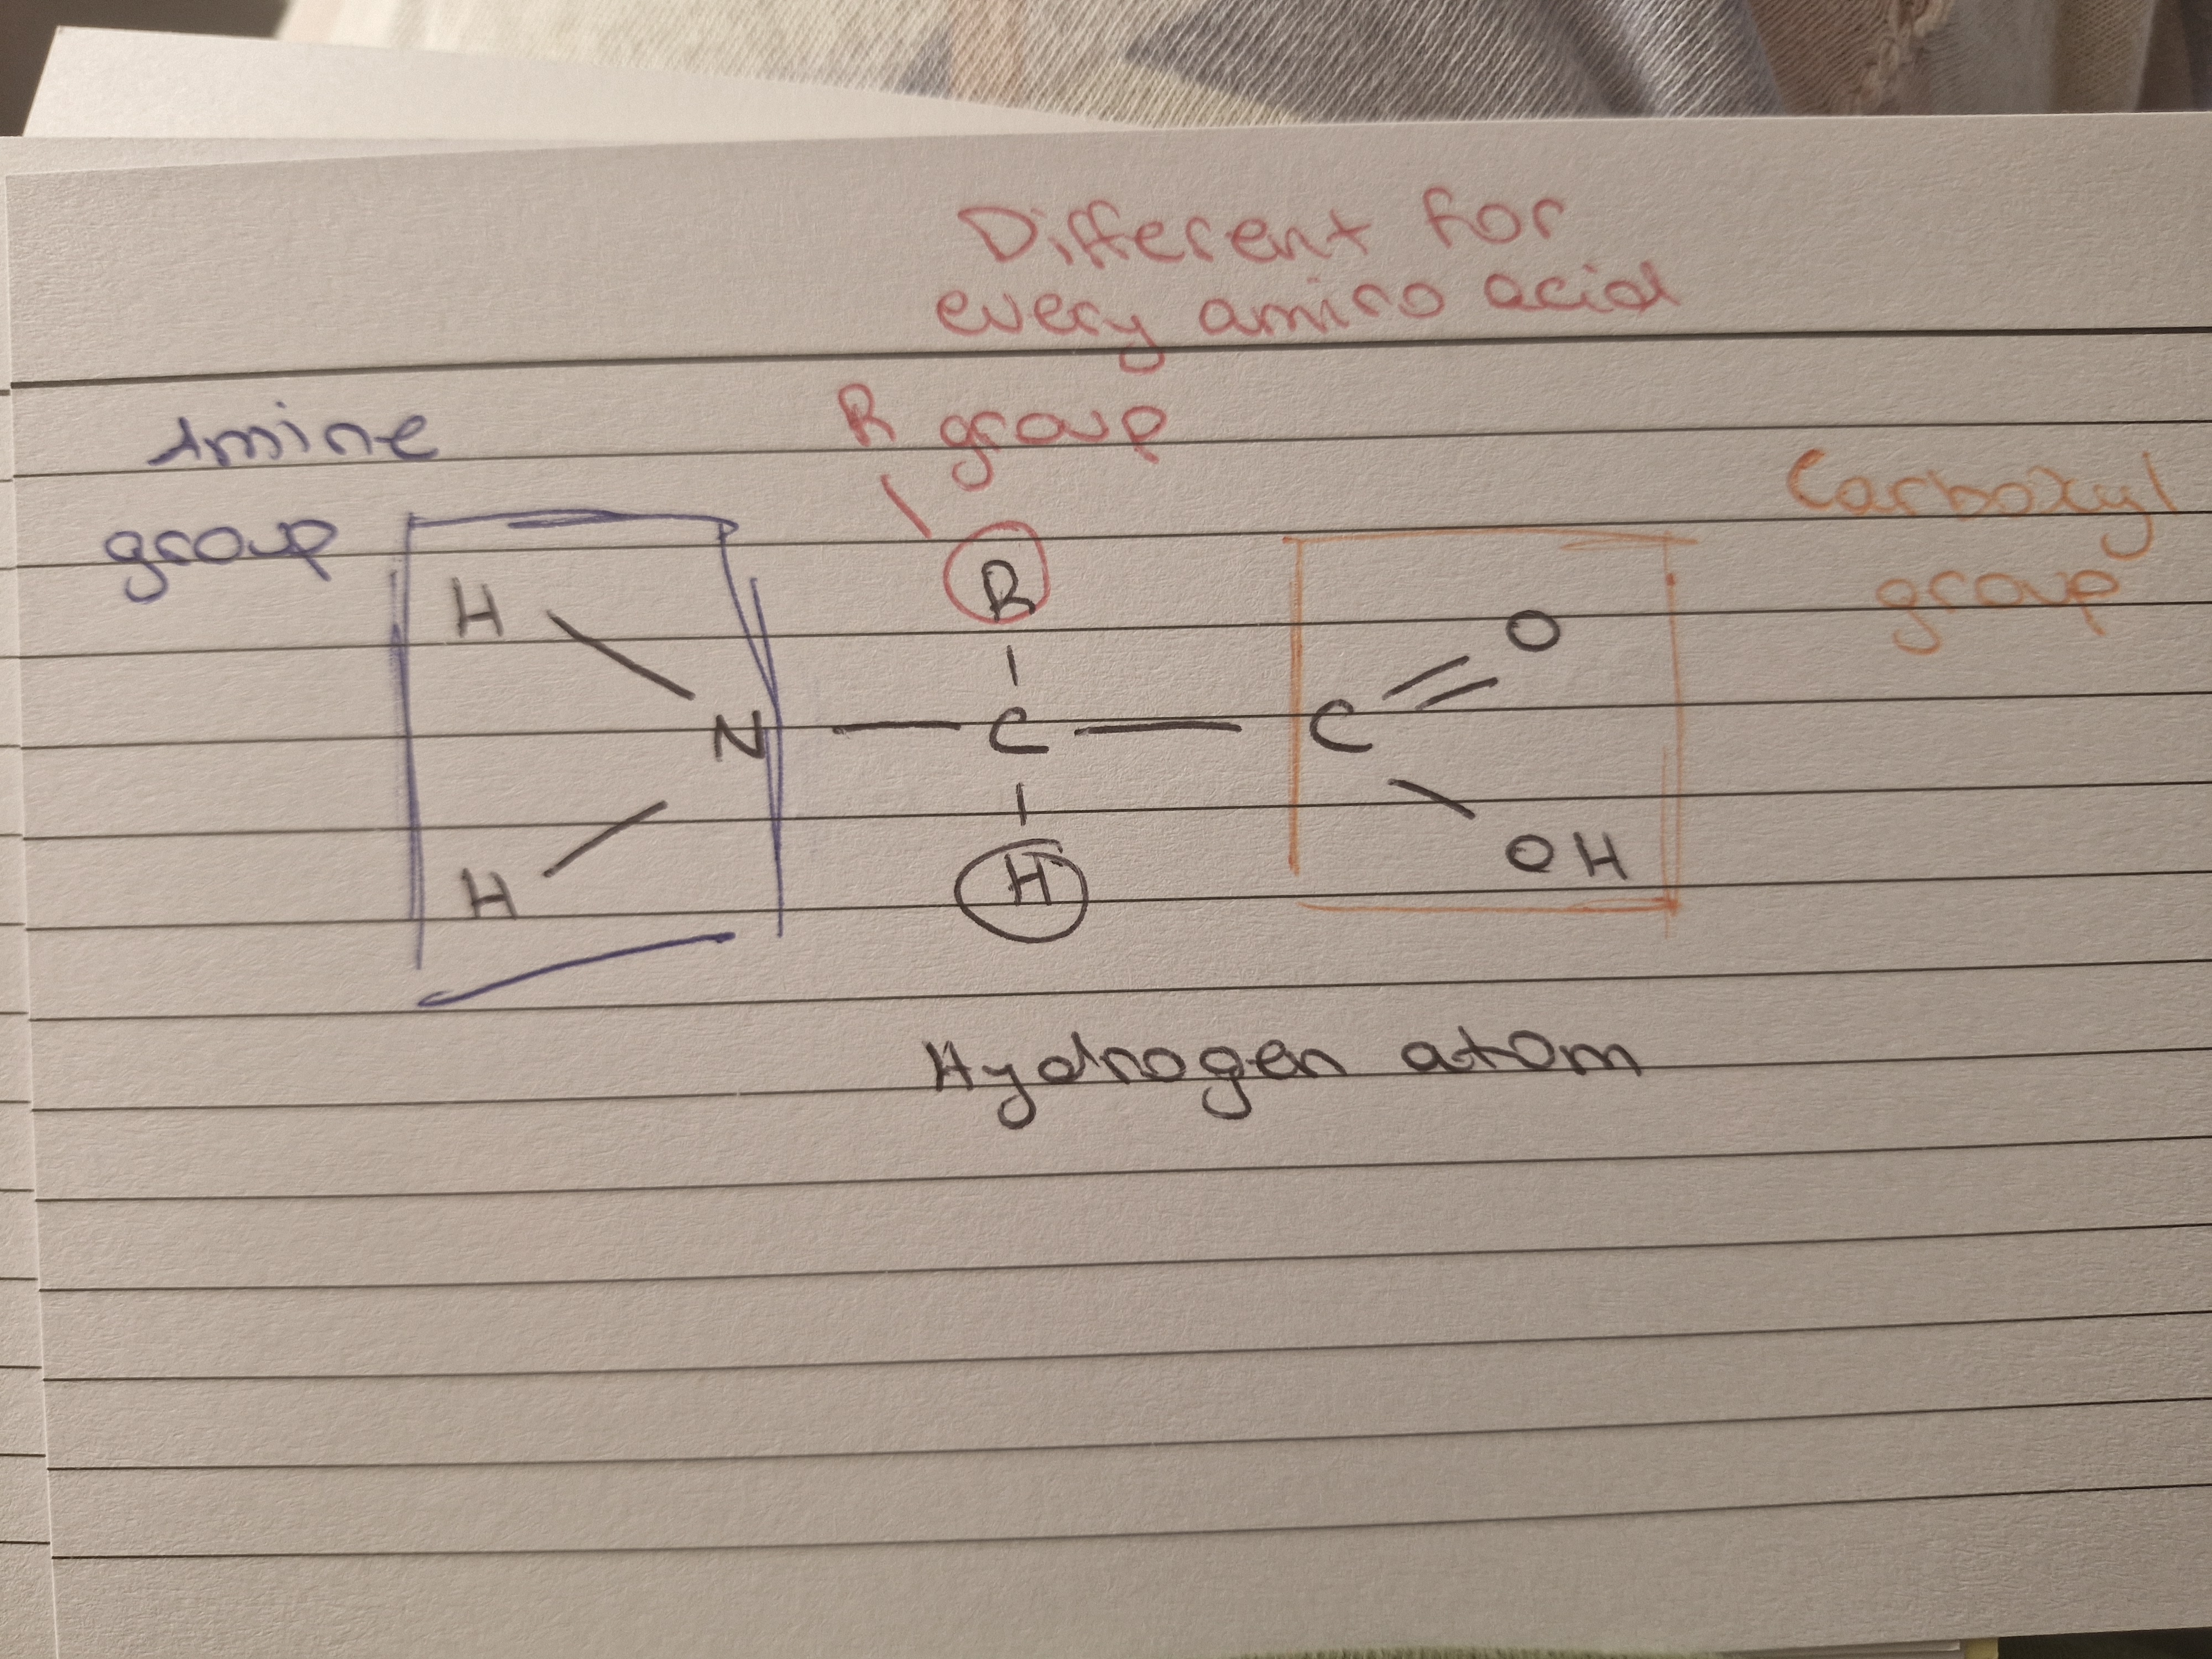 Different for
every amino acid
R group
Amine
group
Carboxyl
group
H
R
O
N
C
C
H
H
OH
Hydrogen atom